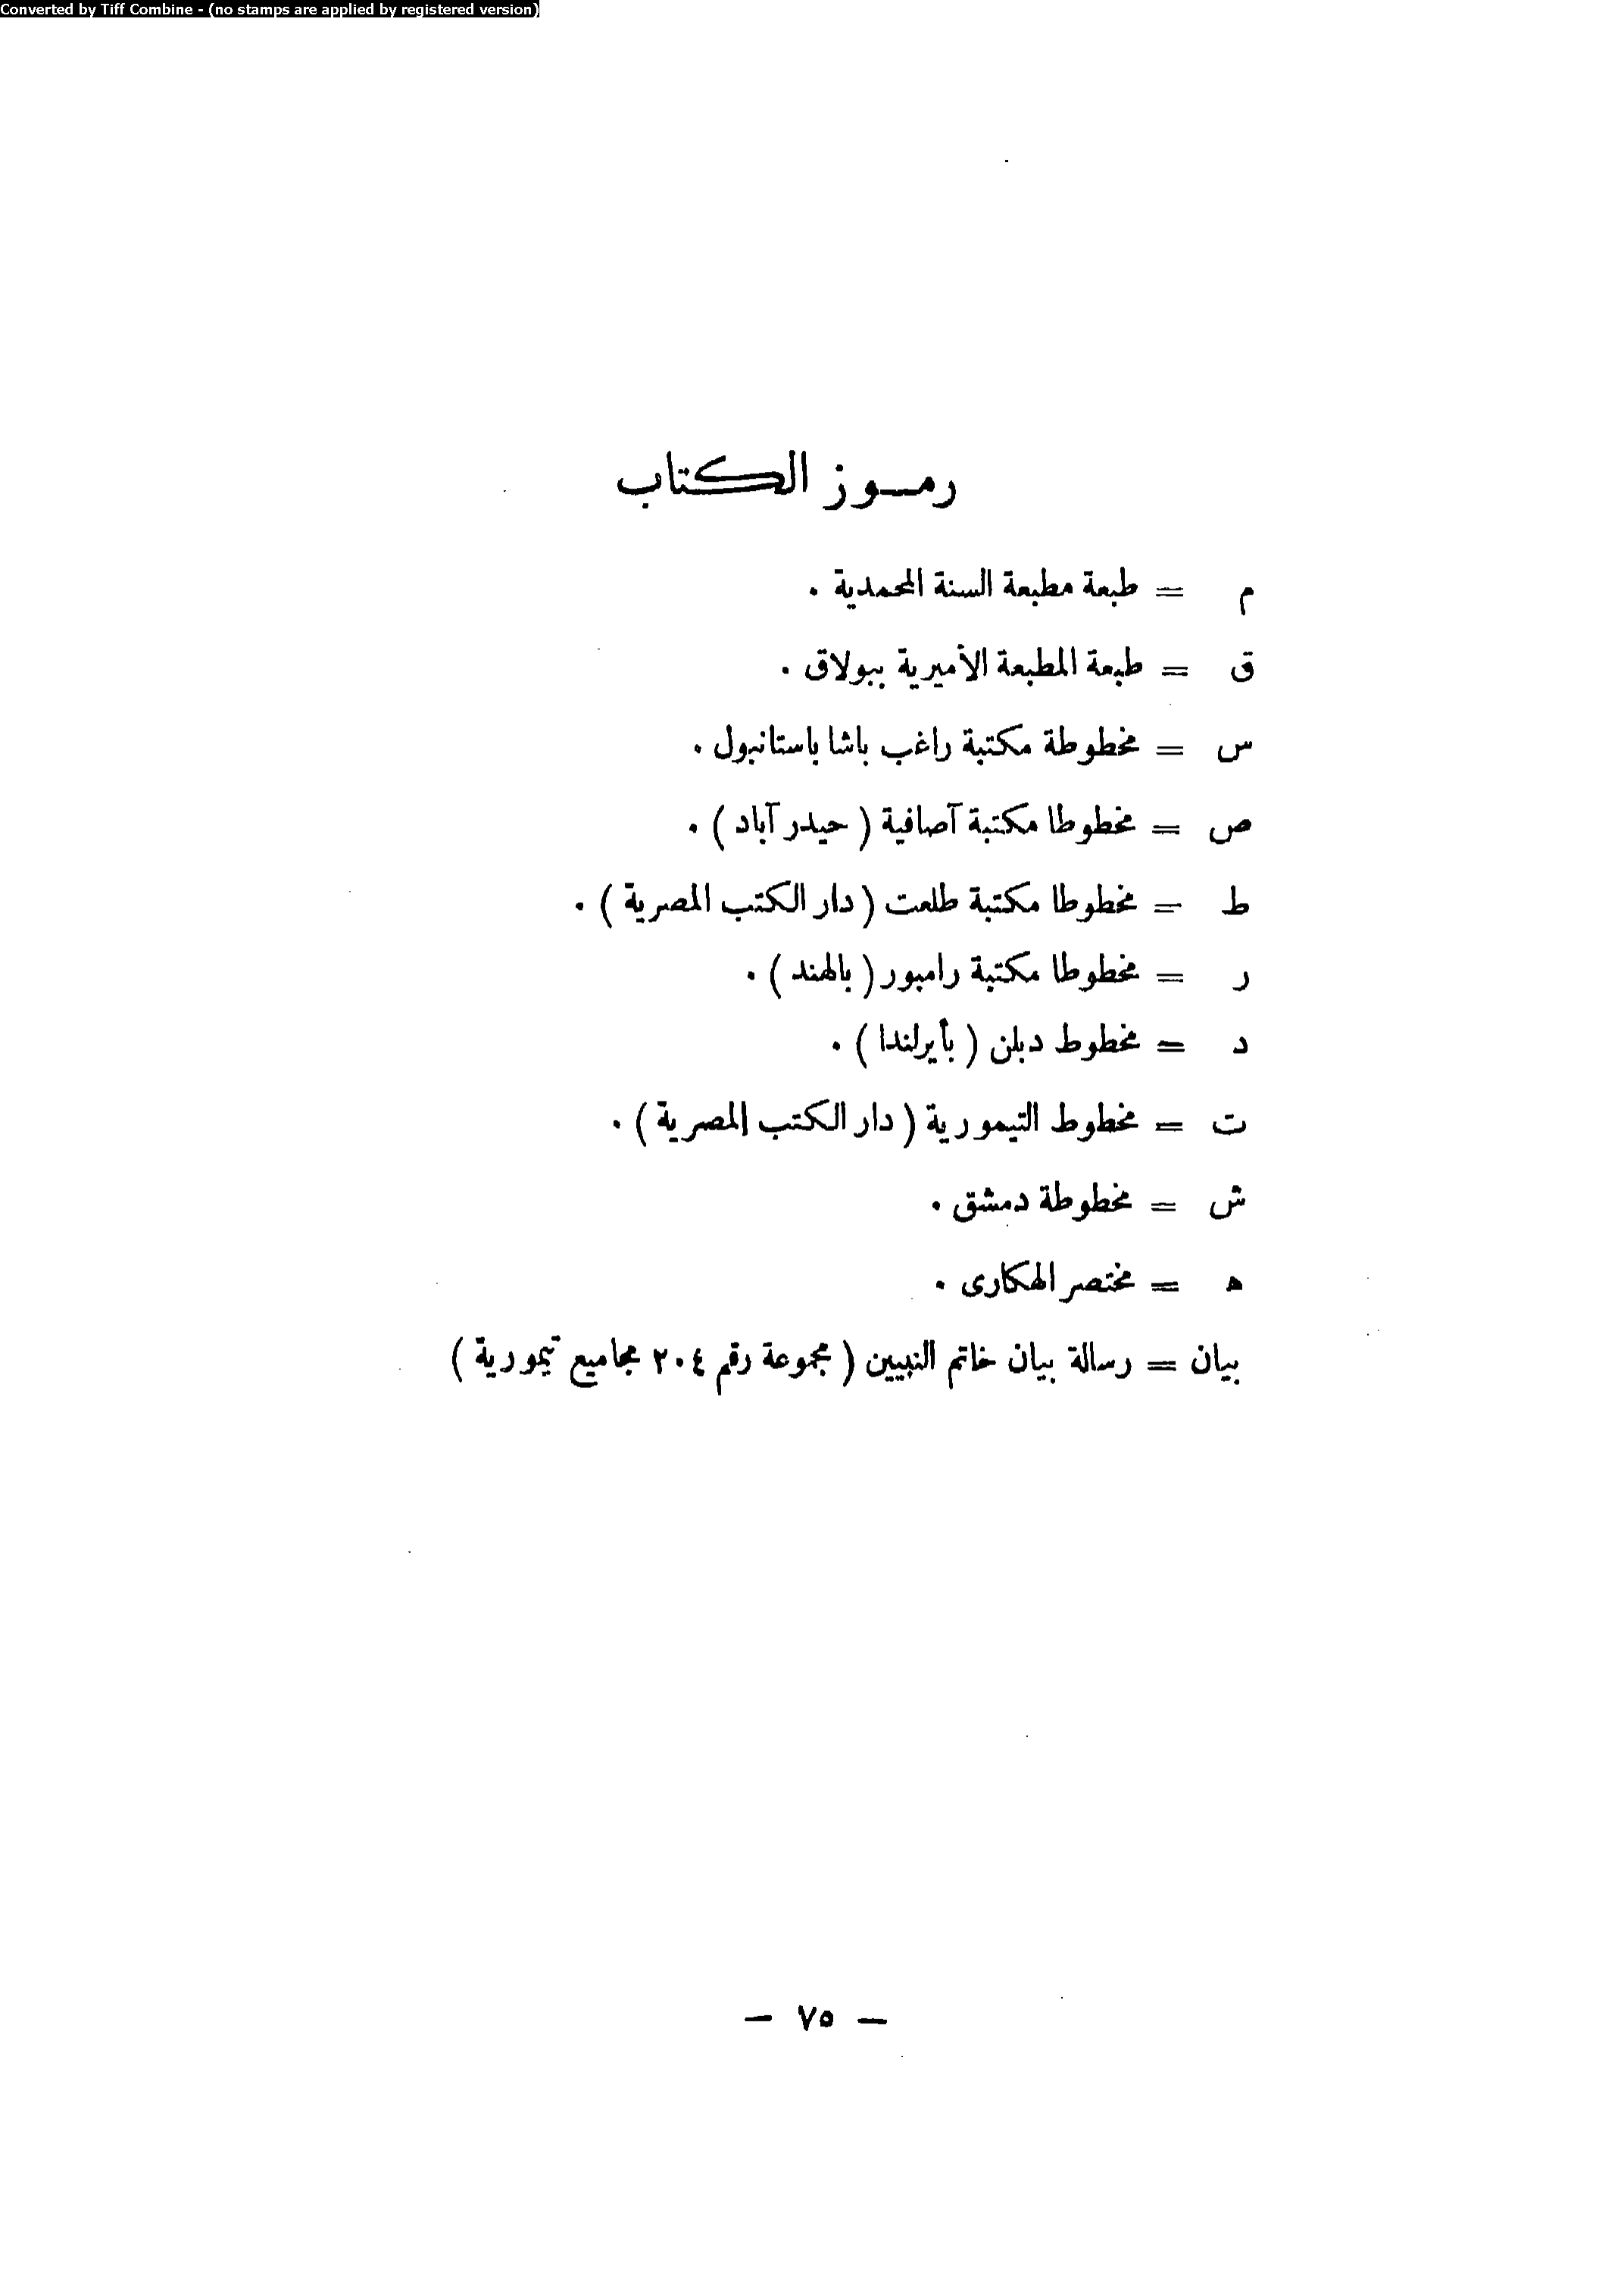 Converted by Tiff Combine - (no stamps are applied by registered version)
رمـوز الكتاب
م = طبعة مطبعة السنة المحمدية .
ق = طبعة المطبعة الأميرية ببولاق .
س = مخطوطة مكتبة راغب باشا باستانبول .
ص = مخطوطا مكتبة آصافية ( حيدر آباد ) .
ط = مخطوطا مكتبة طلعت ( دار الكتب المصرية ) .
ر = مخطوطا مكتبة رامبور ( بالهند ) .
د = مخطوط دبلن ( بأيرلندا ) .
ت = مخطوط التيمورية ( دار الكتب المصرية ) .
ش = مخطوطة دمشق .
ه = مختصر الهكارى .
بيان = رسالة بيان خاتم النبيين ( مجموعة رقم ٢٠٤ مجاميع تيمورية )
— ٧٥ —